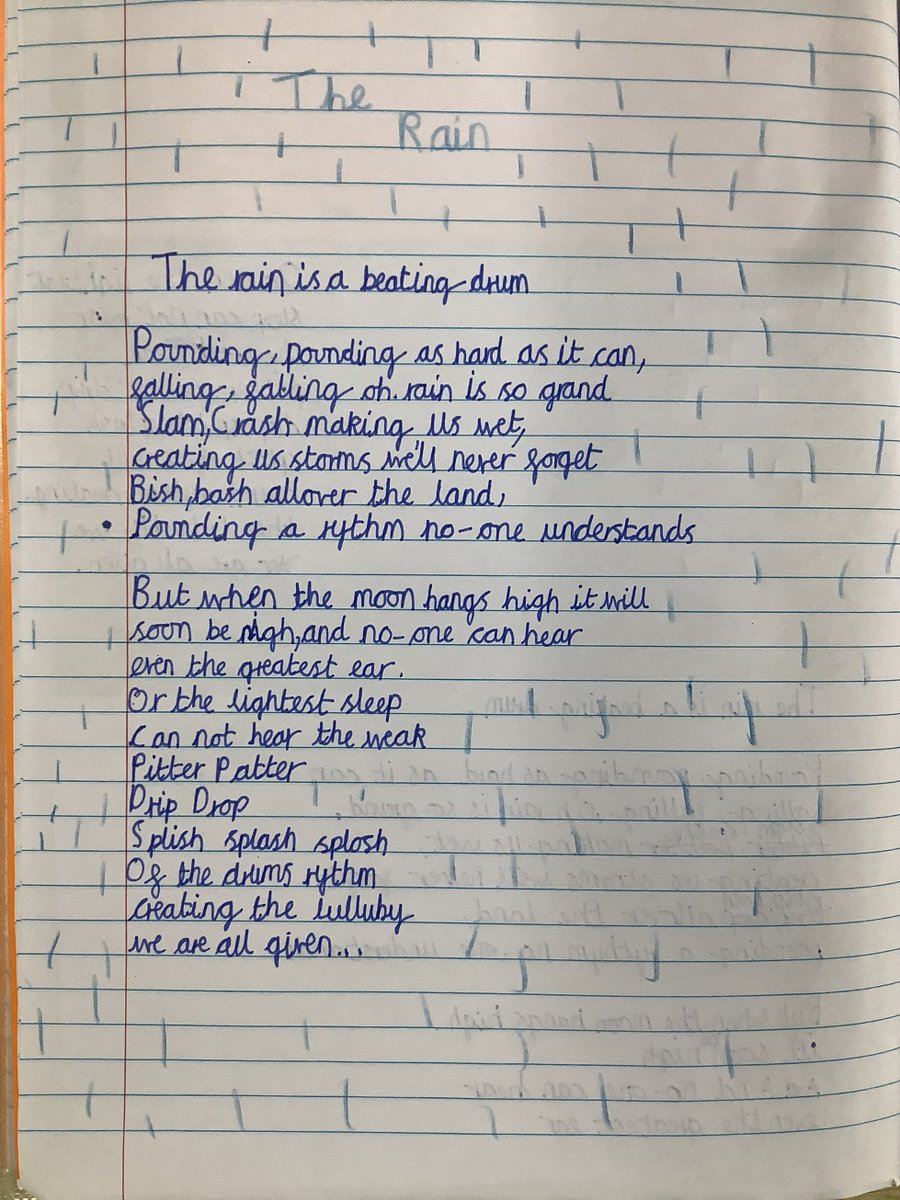 The
Rain
The rain is a beating drum
Pounding, pounding as hard as it can,
falling, falling oh. rain is so grand
Slam, Crash making us wet,
creating us storms we'll never forget
Bish, bash allover the land,
Pounding a rythm no-one understands
But when the moon hangs high it will
soon be nigh, and no-one can hear
even the greatest ear.
Or the lightest sleep
Can not hear the weak
Pitter Patter
Drip Drop
Splish splash splosh
Of the drums rythm
creating the lulluby
we are all given...